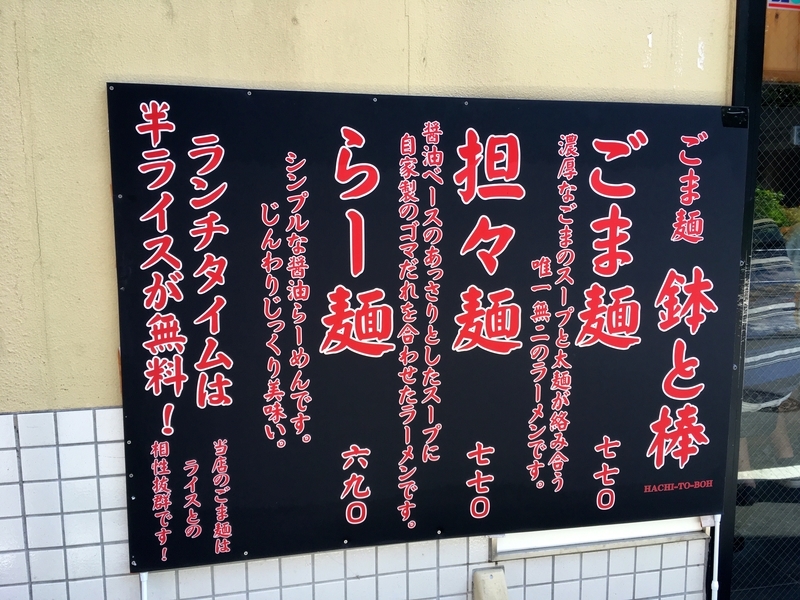 ごま麺 鉢と棒
HACHI-TO-BOH
ごま麺 七七〇
濃厚なごまのスープと太麺が絡み合う
唯一無二のラーメンです。
担々麺 七七〇
醤油ベースのあっさりとしたスープに
自家製のゴマだれを合わせたラーメンです。
らー麺 六九〇
シンプルな醤油らーめんです。
じんわりじっくり美味い。
ランチタイムは
半ライスが無料！
当店のごま麺は
ライスとの
相性抜群です！